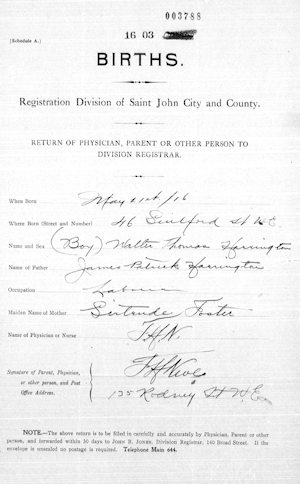 003788
(Schedule A.)
16 03
BIRTHS.
Registration Division of Saint John City and County.
RETURN OF PHYSICIAN, PARENT OR OTHER PERSON TO
DIVISION REGISTRAR.
When Born May 21st/16
Where Born (Street and Number) 46 Guilford St W.E.
Name and Sex (Boy) Walter Thomas Harrington
Name of Father James Patrick Harrington
Occupation Laborer
Maiden Name of Mother Gertrude Foster
Name of Physician or Nurse
Signature of Parent, Physician,
or other person, and Post
Office Address. 135 Rodney St W.E.
NOTE.—The above return is to be filled in carefully and accurately by Physician, Parent or other
person, and forwarded within 30 days to JOHN B. JONES, Division Registrar, 140 Broad Street. If
the envelope is unsealed no postage is required. Telephone Main 644.